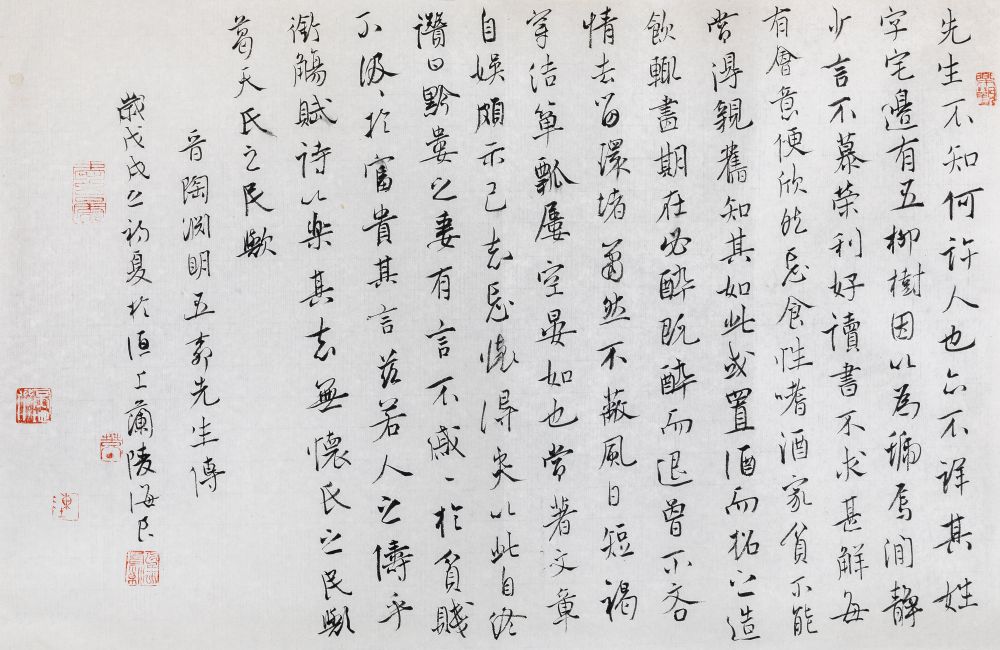 先生不知何許人也亦不詳其姓
字宅邊有五柳樹因以為號焉閒靜
少言不慕榮利好讀書不求甚解每
有會意便欣然忘食性嗜酒家貧不能
常得親舊知其如此或置酒而招之造
飲輒盡期在必醉既醉而退曾不吝
情去留環堵蕭然不蔽風日短褐
穿結簞瓢屢空晏如也常著文章
自娛頗示己志忘懷得失以此自終
讚曰黔婁之妻有言不戚〻於貧賤
不汲〻於富貴其言茲若人之儔乎
銜觴賦詩以樂其志無懷氏之民歟
葛天氏之民歟
晉陶淵明五柳先生傳
歲戊戌之初夏於上蘭陵海